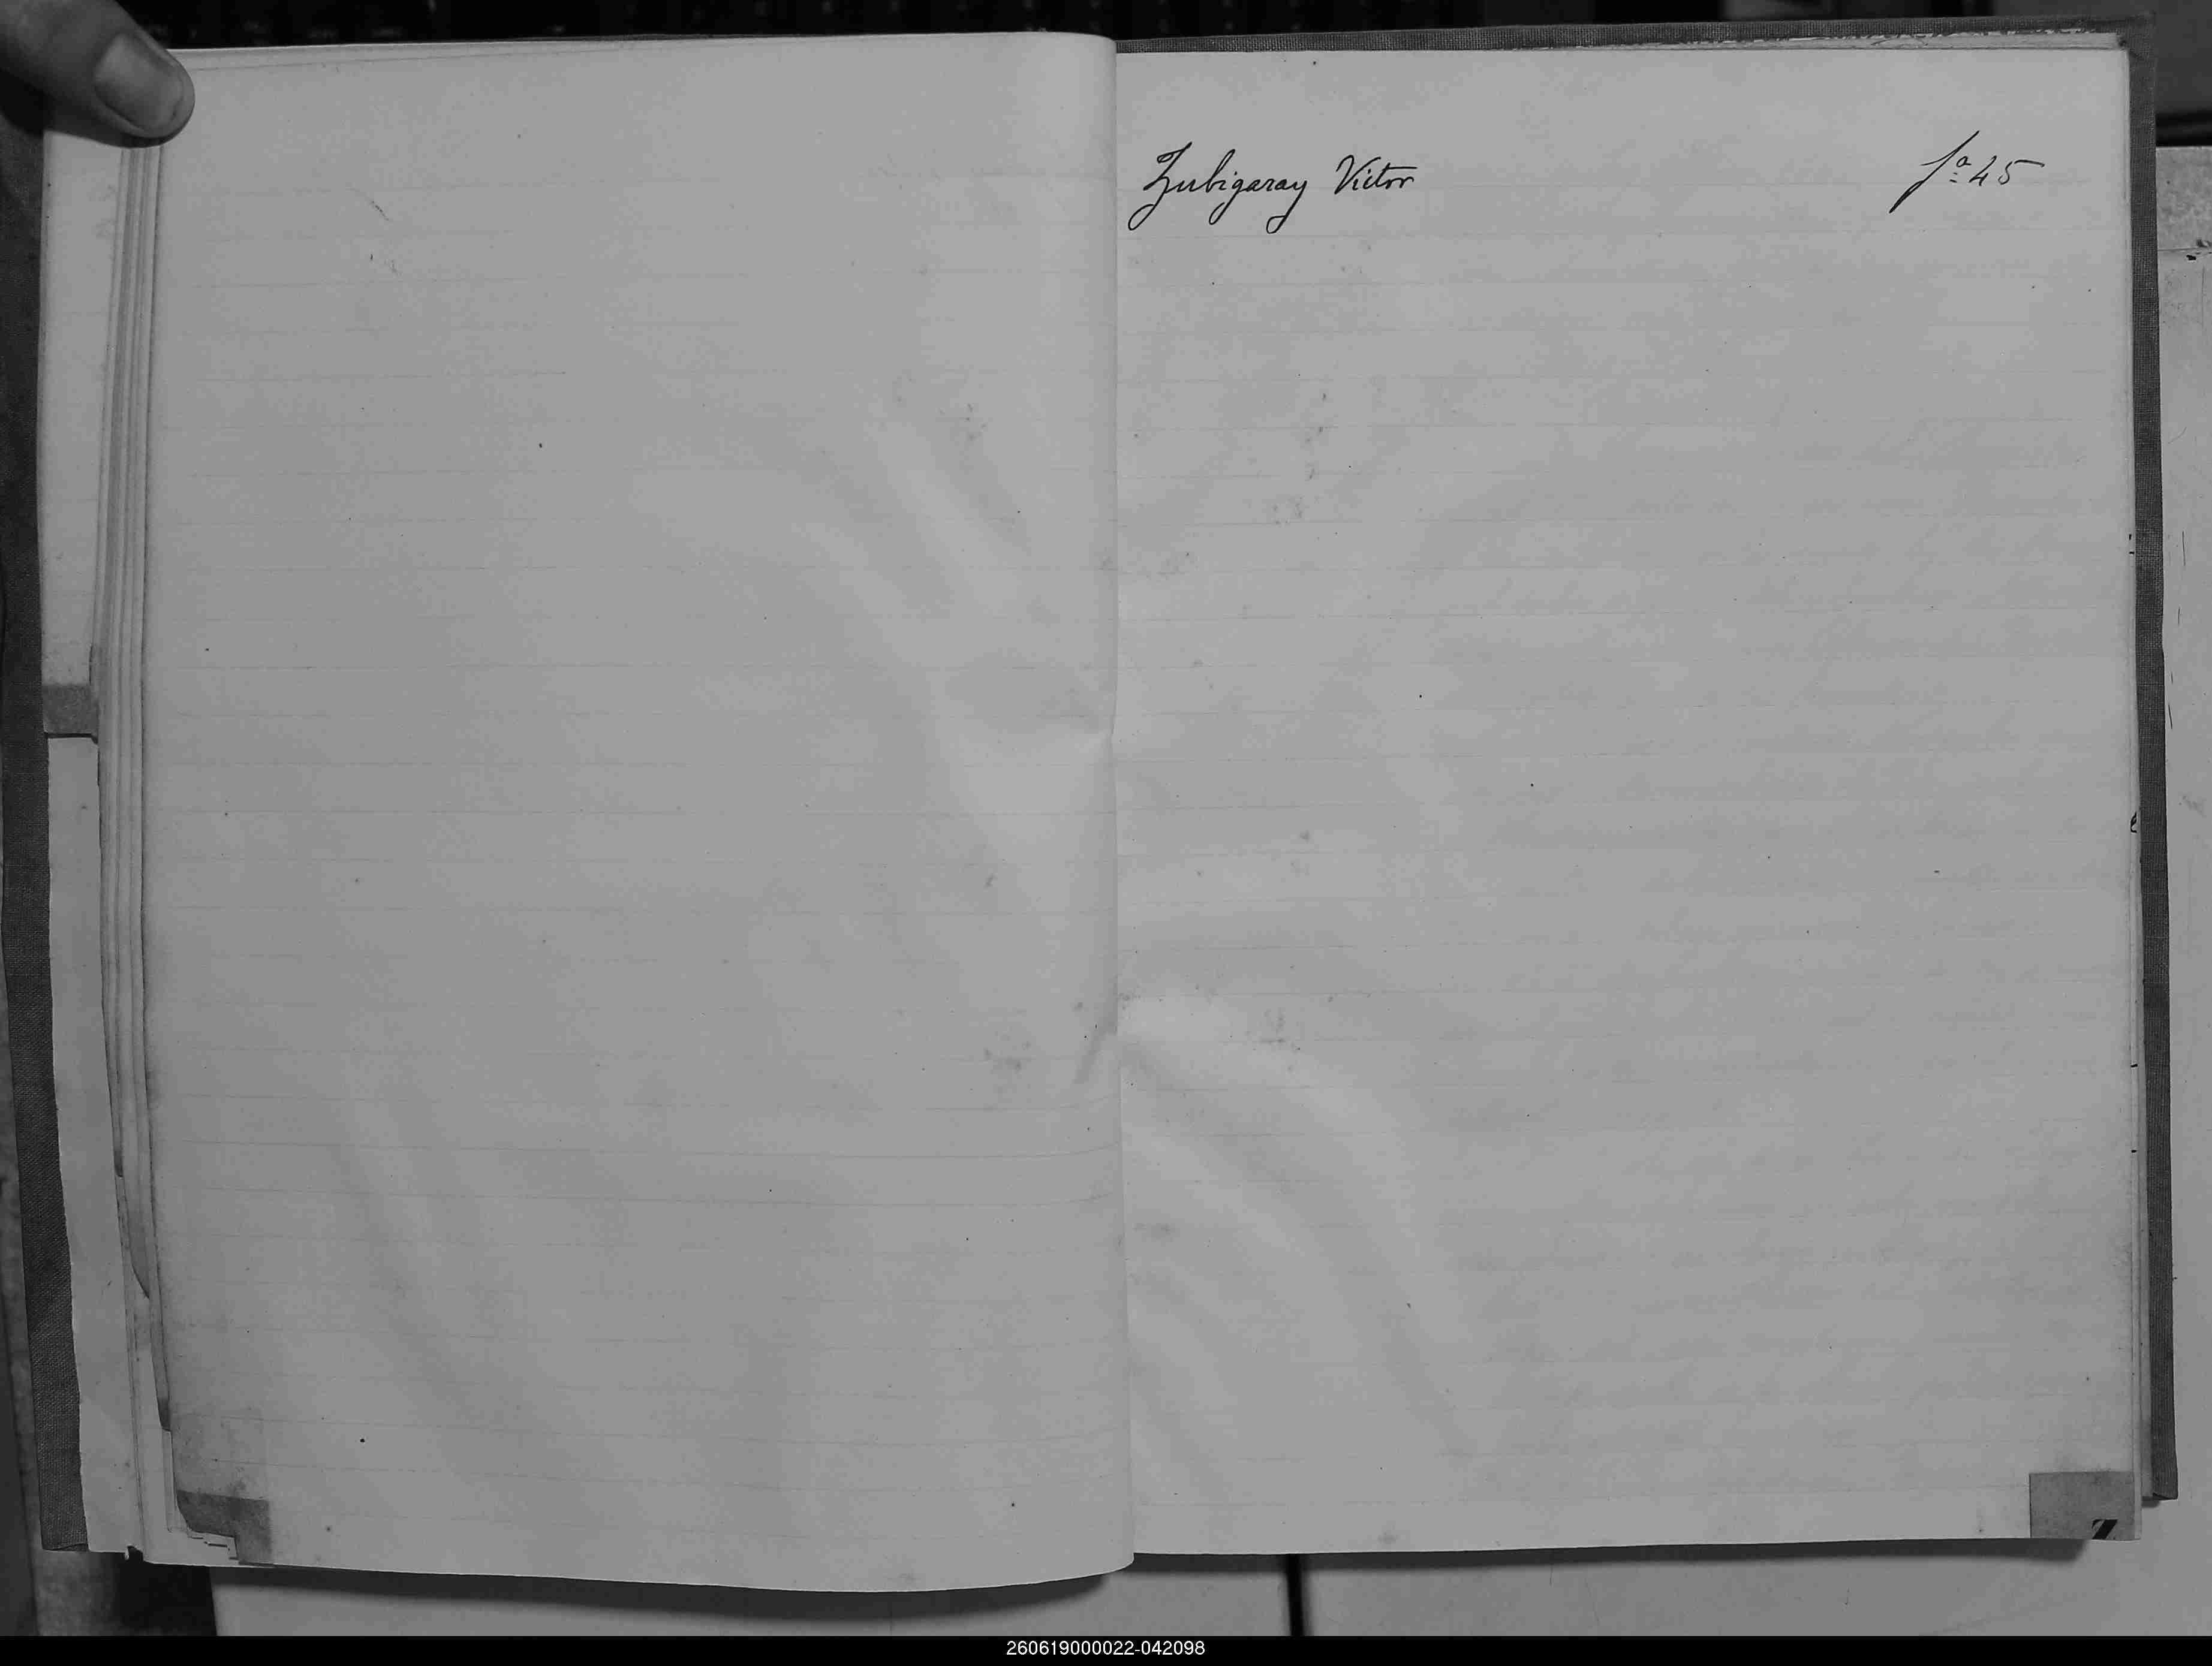 Zubigaray Victor fª 45
Z
260619000022-042098